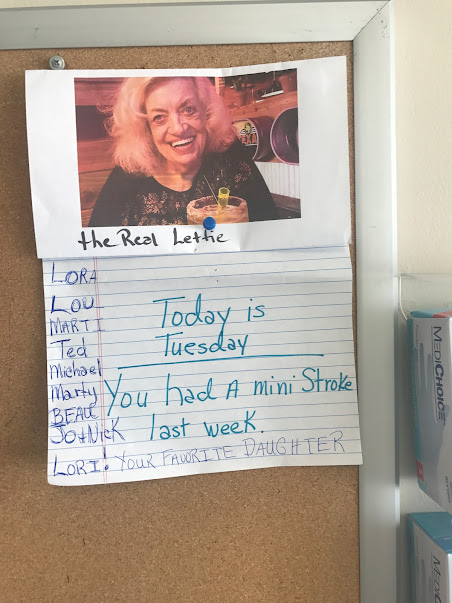 the Real Lettie
LORA
LOU
MARTI
Ted
Michael
Marty
BEAUE
Jo+Nick
LORI! YOUR FAVORITE DAUGHTER
Today is
Tuesday
You had A mini Stroke
last week.
MEDICHOICE
MEDICHOICE